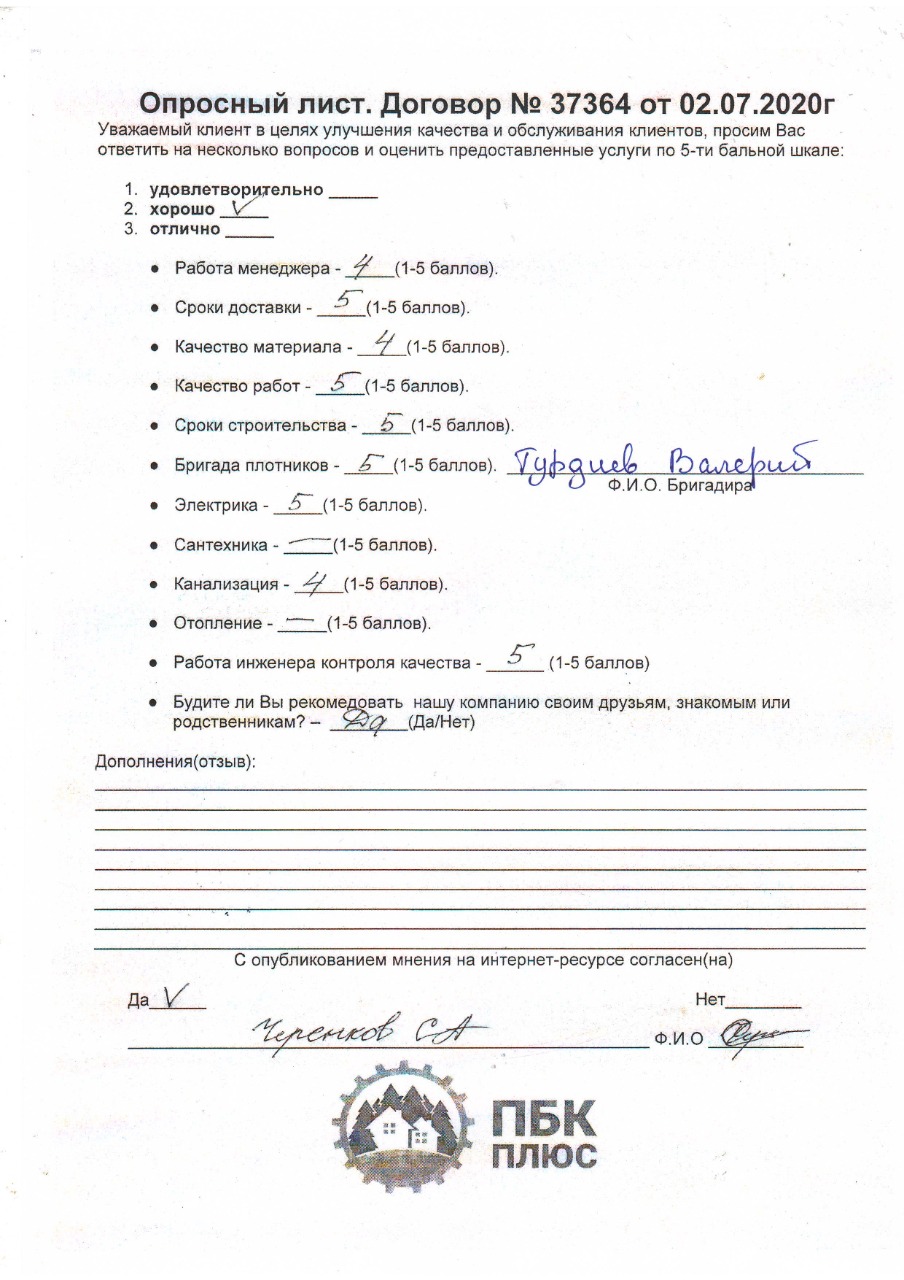 Опросный лист. Договор № 37364 от 02.07.2020г
Уважаемый клиент в целях улучшения качества и обслуживания клиентов, просим Вас
ответить на несколько вопросов и оценить предоставленные услуги по 5-ти бальной шкале:
1. удовлетворительно _____
2. хорошо __V__
3. отлично _____
● Работа менеджера - 4 (1-5 баллов).
● Сроки доставки - 5 (1-5 баллов).
● Качество материала - 4 (1-5 баллов).
● Качество работ - 5 (1-5 баллов).
● Сроки строительства - 5 (1-5 баллов).
● Бригада плотников - 5 (1-5 баллов). Гурдиев Валерий
Ф.И.О. Бригадира
● Электрика - 5 (1-5 баллов).
● Сантехника - — (1-5 баллов).
● Канализация - 4 (1-5 баллов).
● Отопление - — (1-5 баллов).
● Работа инженера контроля качества - 5 (1-5 баллов)
● Будите ли Вы рекомедовать нашу компанию своим друзьям, знакомым или
родственникам? – Да (Да/Нет)
Дополнения(отзыв):
С опубликованием мнения на интернет-ресурсе согласен(на)
Да V Нет
Черенков С А Ф.И.О
ПБК
ПЛЮС